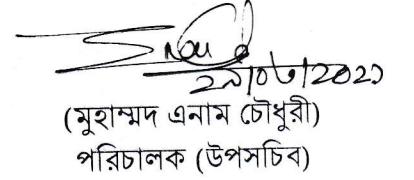 ২৯/০৬/২০২১
(মুহাম্মদ এনাম চৌধুরী)
পরিচালক (উপসচিব)